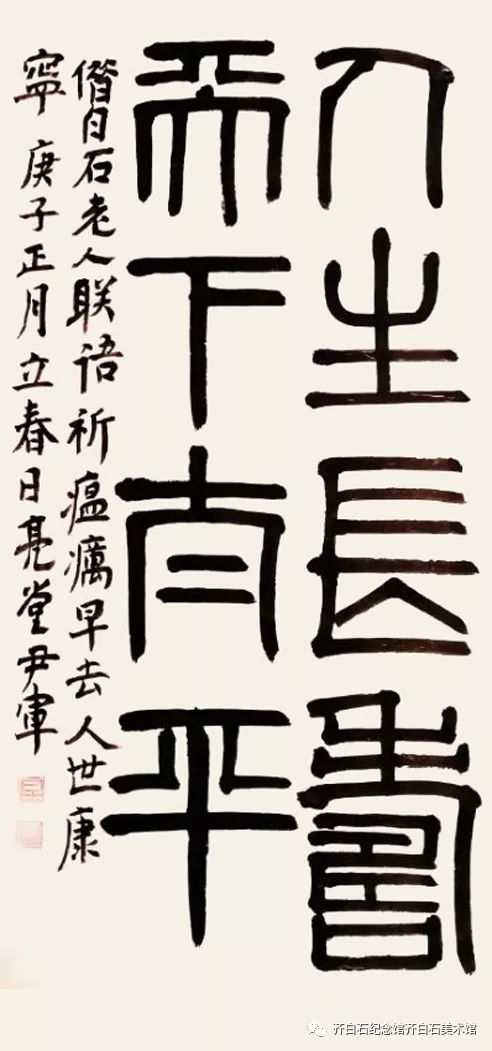 人生長壽
天下太平
借白石老人联语祈瘟癘早去人世康
寧庚子正月立春日亮堂尹軍
齐白石纪念馆齐白石美术馆